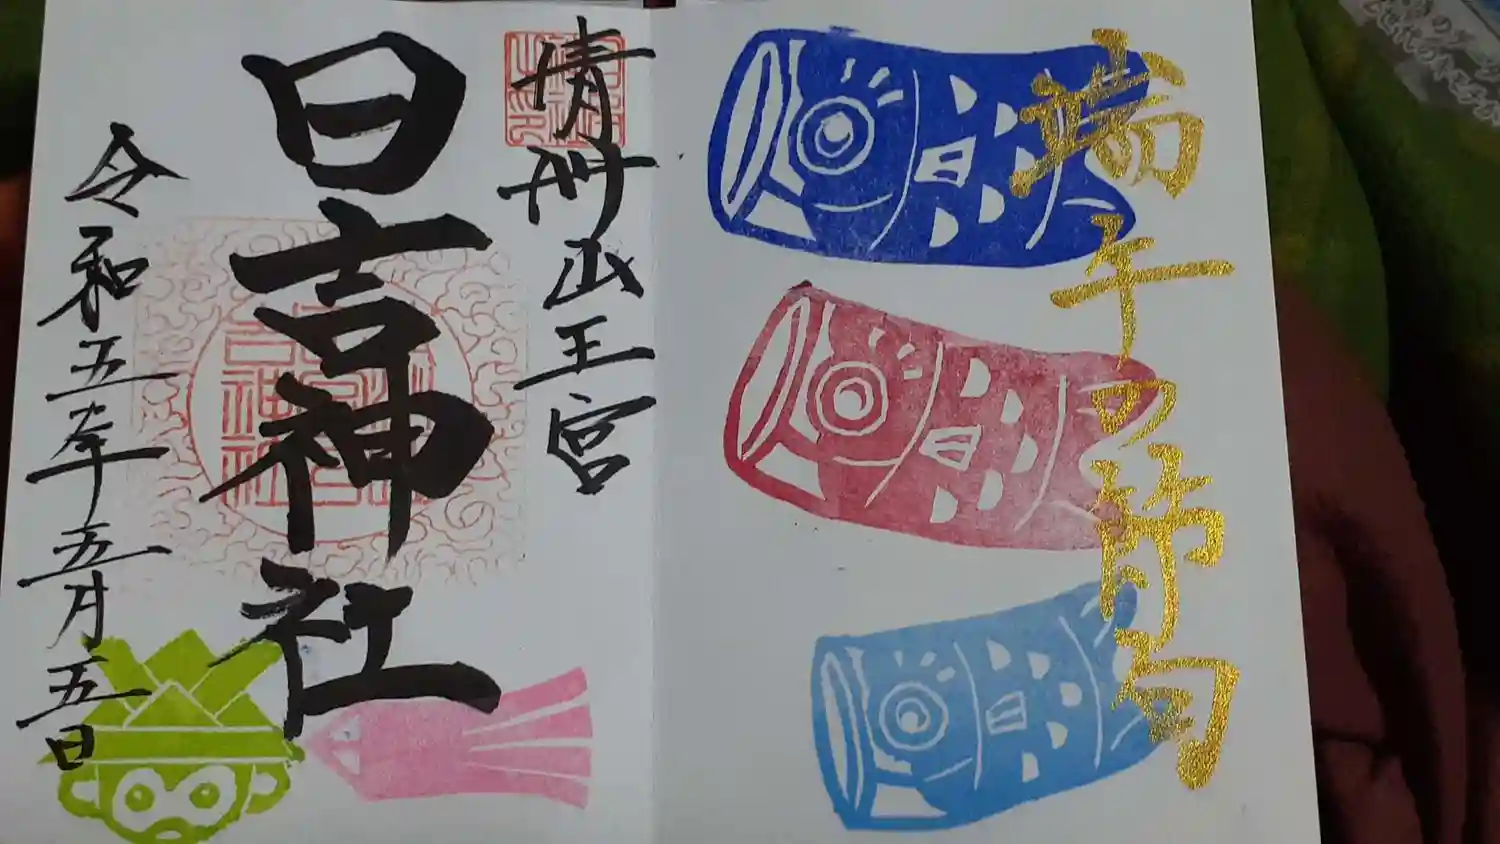 端午の節句
清洲山王宮
日吉神社
令和五年五月五日